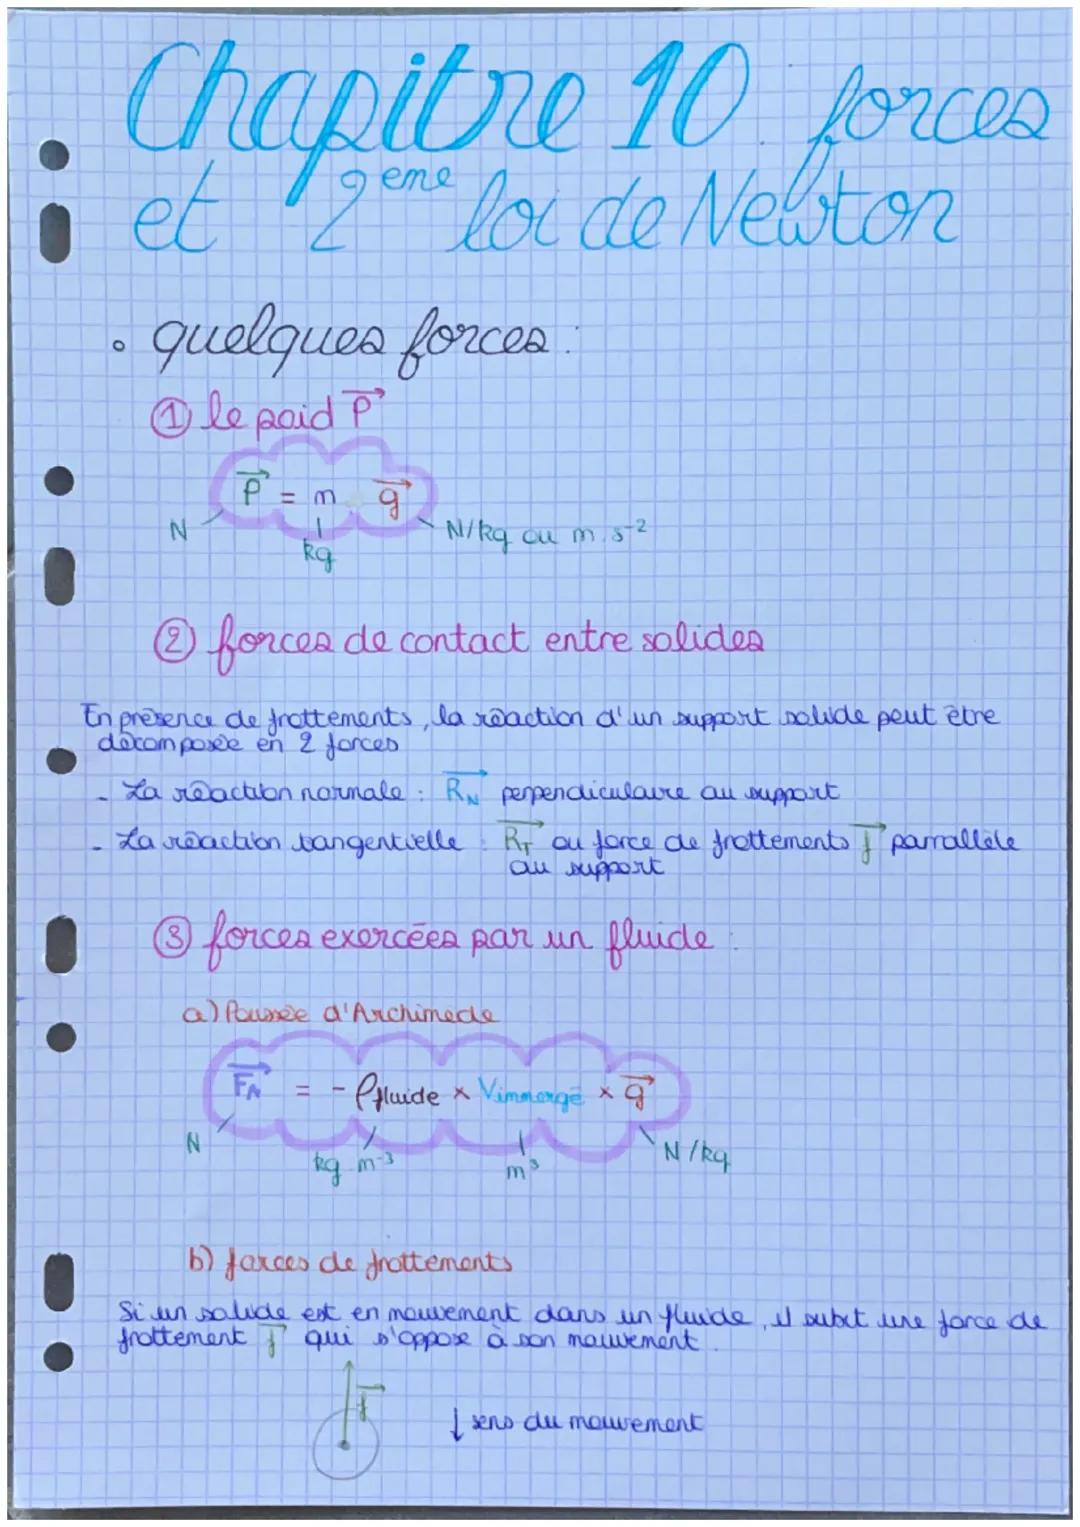 Chapitre 10 forces
et 2eme loi de Newton
• quelques forces :
① le poid P⃗
P⃗ = m . g⃗
N
kg
N/kg ou m.s⁻²
② forces de contact entre solides
En présence de frottements, la réaction d'un support solide peut être
décomposée en 2 forces
- La réaction normale : R⃗N perpendiculaire au support
- La réaction tangentielle : R⃗T ou force de frottements f⃗ parrallèle
au support
③ forces exercées par un fluide :
a) Poussée d'Archimede
F⃗A = - ρfluide × Vimmergé × g⃗
N
kg.m⁻³
m³
N/kg
b) forces de frottements
Si un solide est en mouvement dans un fluide, il subit une force de
frottement f⃗ qui s'oppose à son mouvement.
f⃗
↓ sens du mouvement